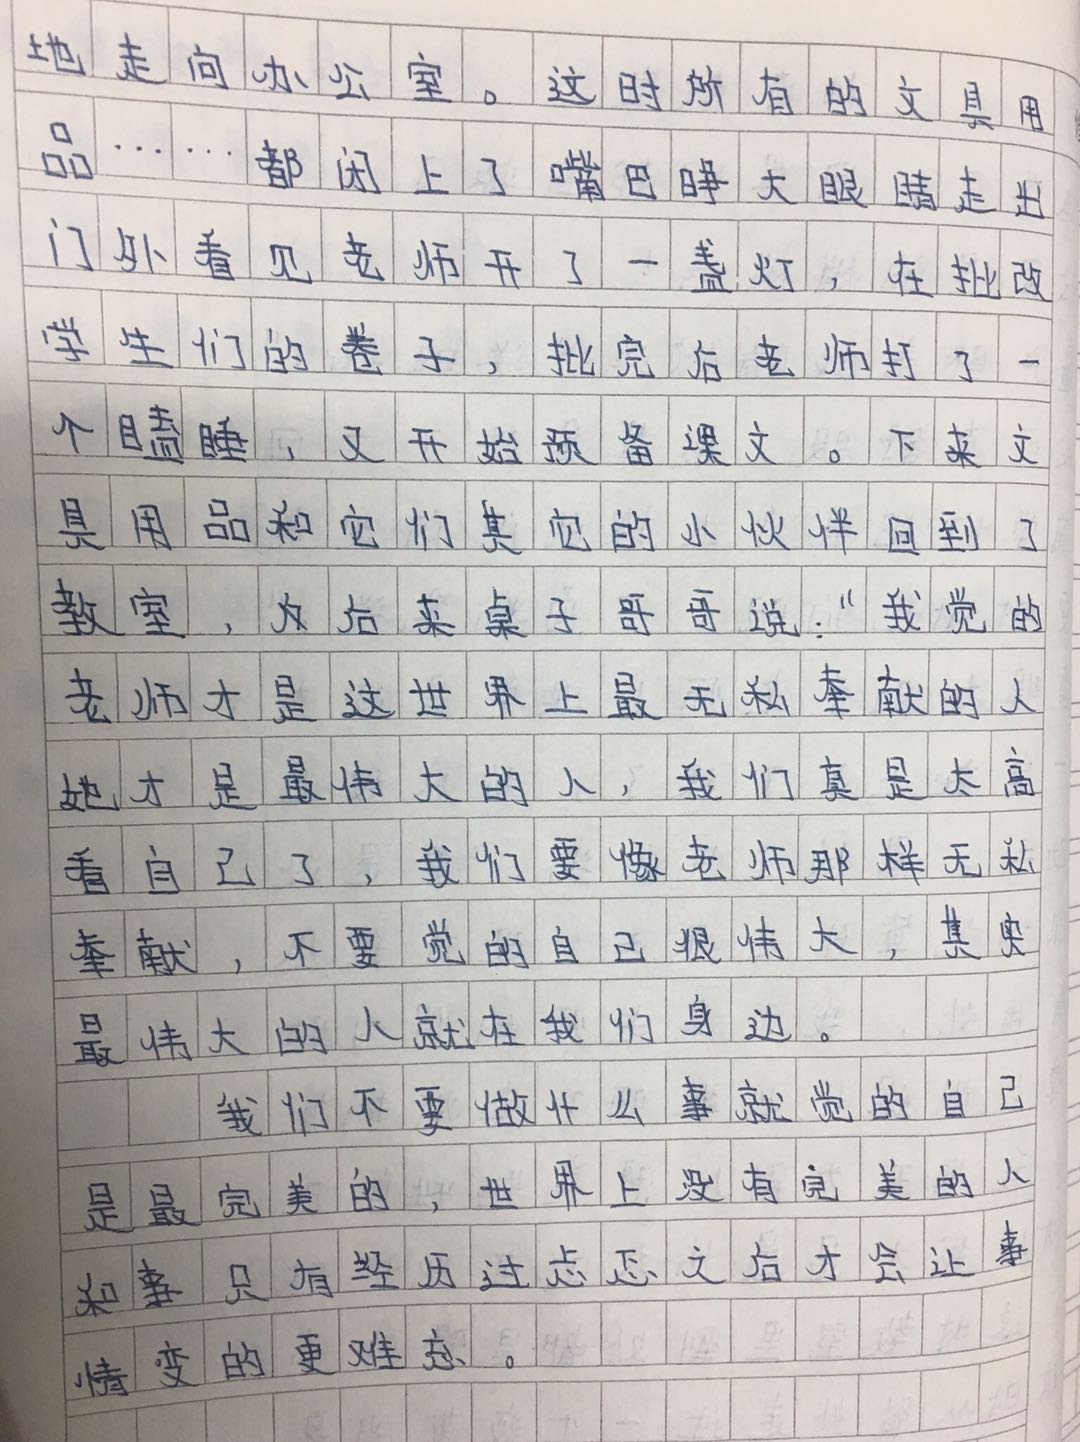 地走向办公室。这时所有的文具用
品……都闭上了嘴巴睁大眼睛走出
门外看见老师开了一盏灯，在批改
学生们的卷子，批完后老师打了一
个瞌睡，又开始预备课文。下来文
具用品和它们其它的小伙伴回到了
教室，后来桌子哥哥说：“我觉的
老师才是这世界上最无私奉献的人
她才是最伟大的人，我们真是太高
看自己了，我们要像老师那样无私
奉献，不要觉的自己很伟大，其实
最伟大的人就在我们身边。
我们不要做什么事就觉的自己
是最完美的，世界上没有完美的人
和事只有经历过忐忑之后才会让事
情变的更难忘。